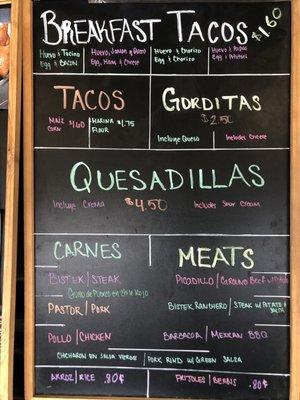 BREAKFAST TACOS $1.60
Huevo & Tocino
Egg & BACON
Huevo, Jamon y Queso
Egg, Ham & Cheese
Huevo & Chorizo
Egg & Chorizo
Huevo & Papas
Egg & Potatoes
TACOS
MAIZ $1.60
CORN
HARINA $1.75
FLOUR
GORDITAS
$2.50
Incluye Queso
Includes Cheese
QUESADILLAS
Incluye Crema
$4.50
Includes Sour Cream
CARNES
MEATS
BISTEK/STEAK
Guiso de Puerco en Chile Rojo
PASTOR/PORK
PICADILLO/GROUND Beef w/
BISTEK RANCHERO/STEAK w/ POTATO &
SALSA
POLLO/CHICKEN
BARBACOA/MEXICAN BBQ
CHICHARON EN SALSA VERDE/PORK RIND W/ GREEN SALSA
ARROZ/RICE .80¢
FRIJOLES/BEANS .80¢